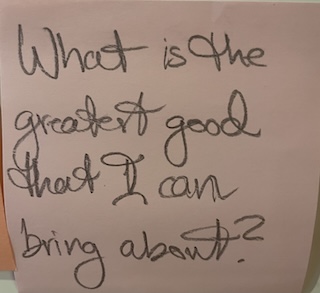 What is the
greatest good
that I can
bring about?